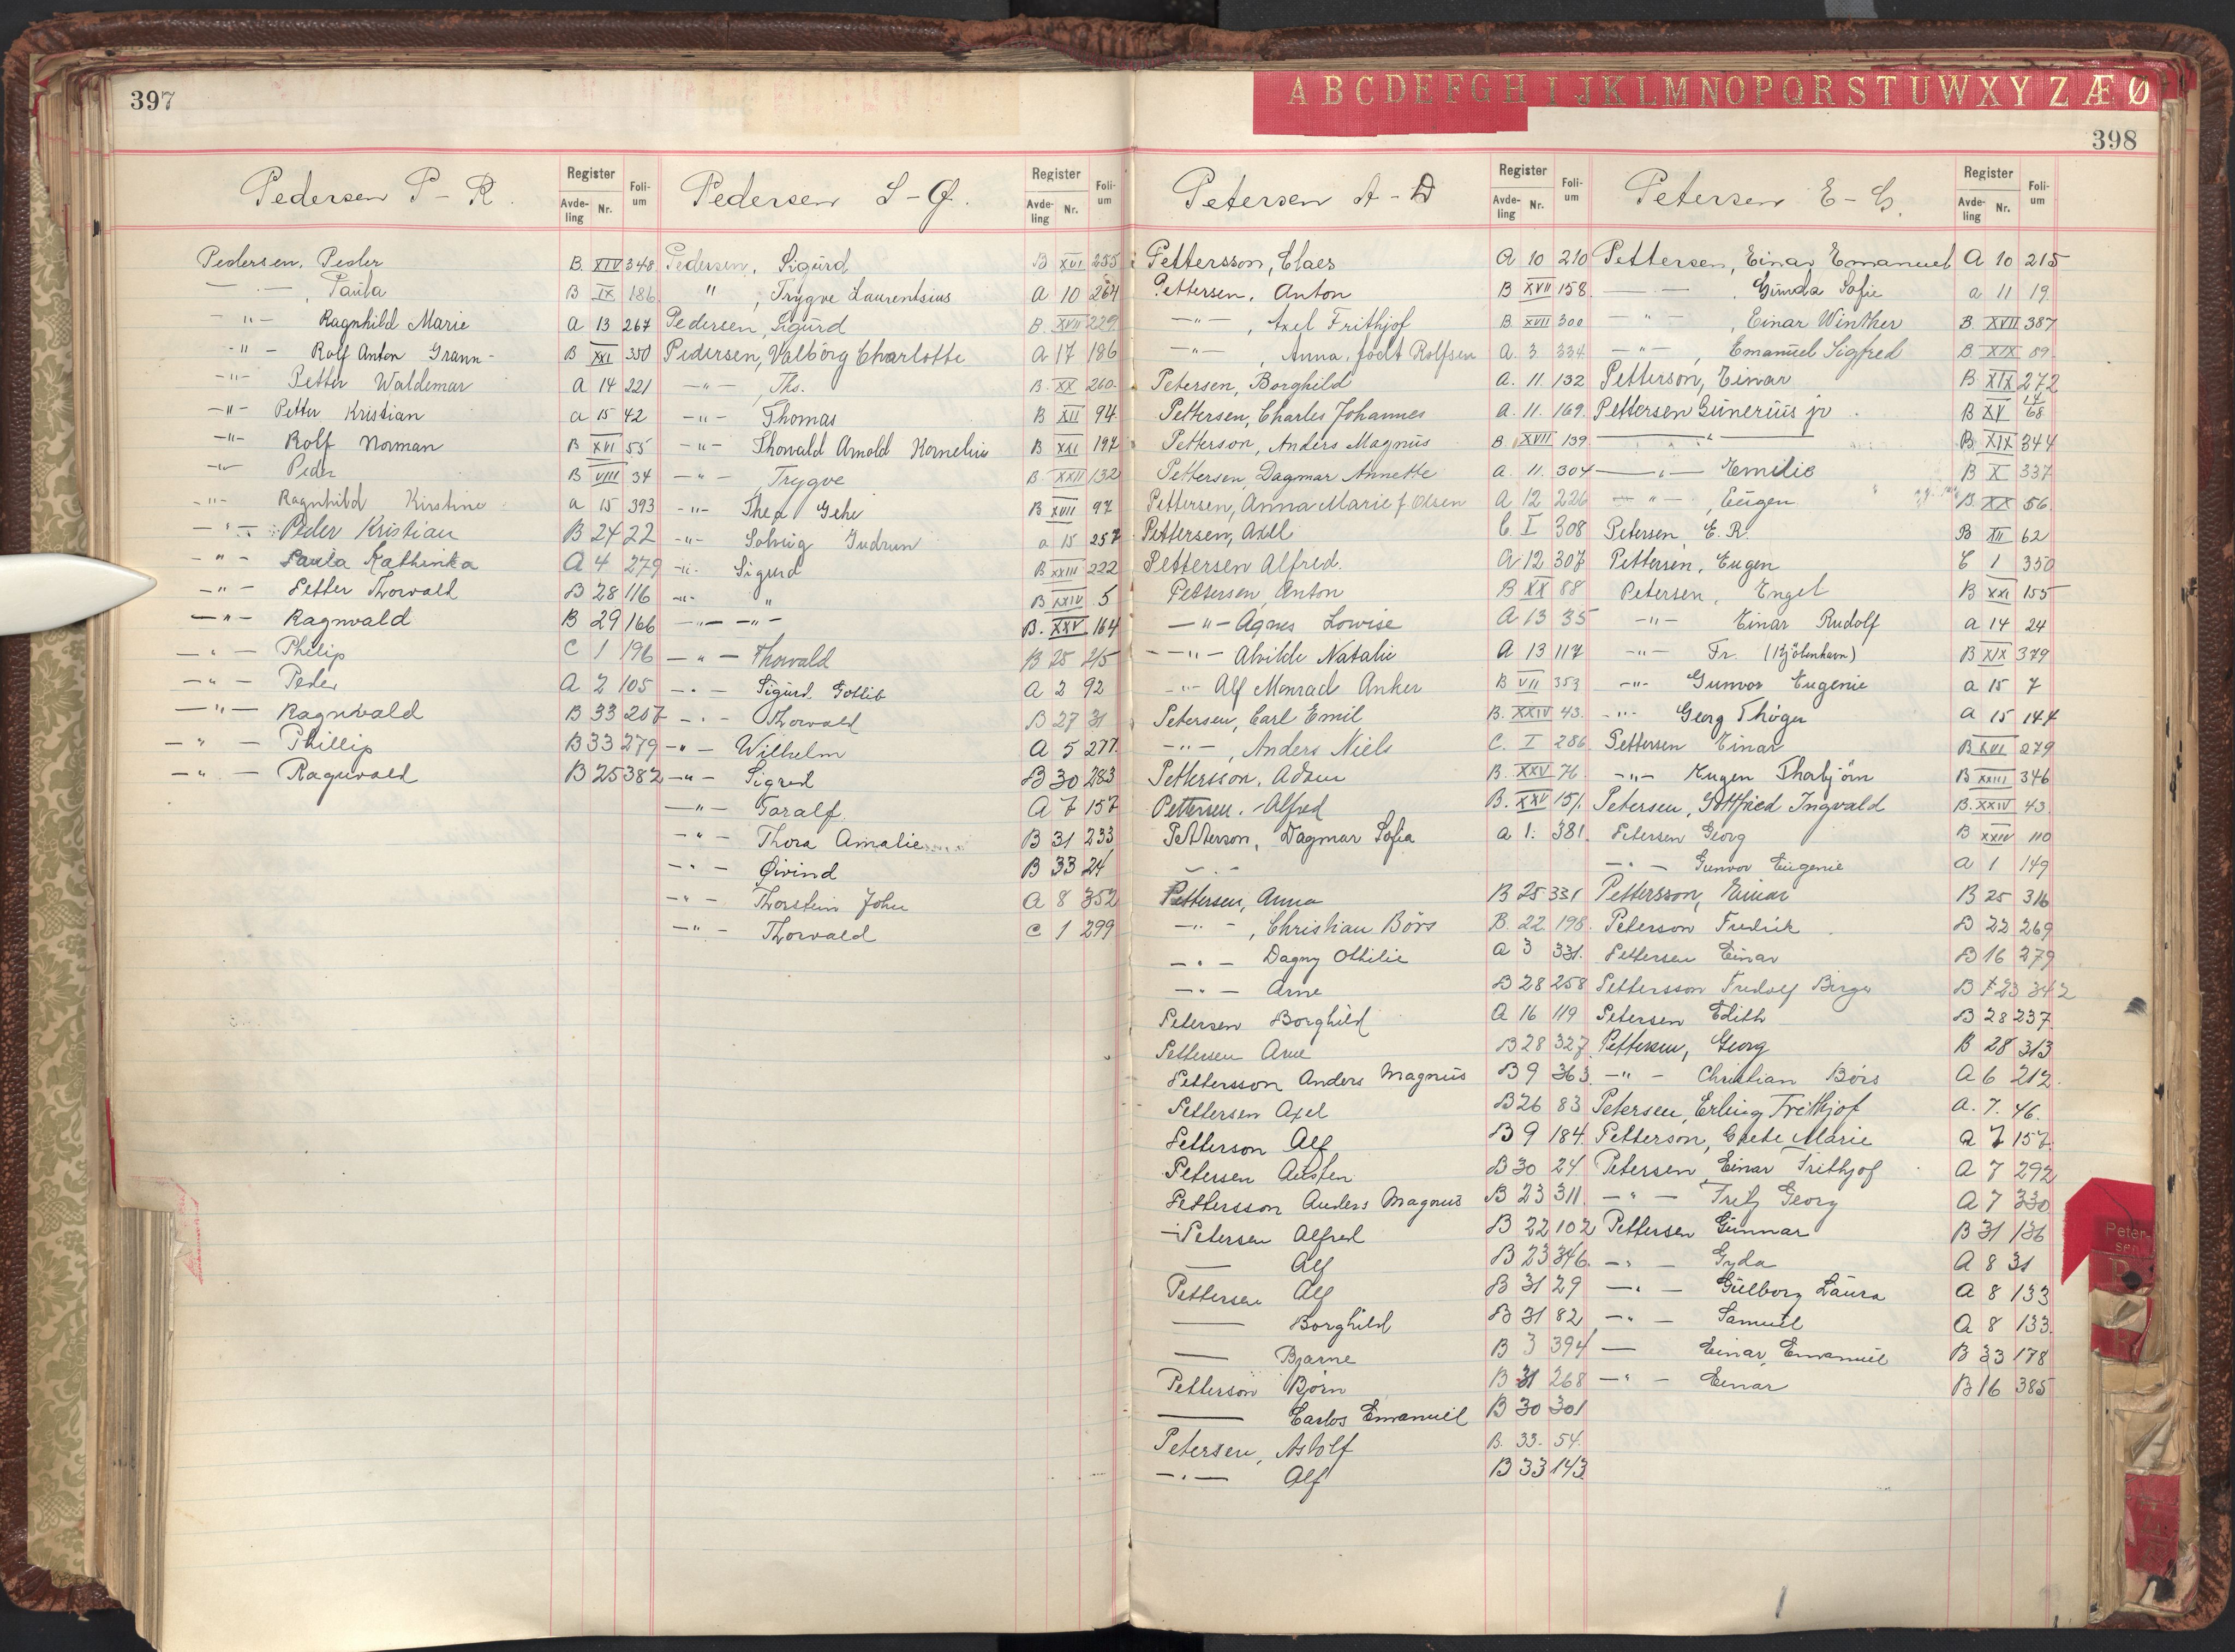 397
Pedersen P - R.
Register
Avde-ling Nr.
Foli-um
Pedersen, Peder B. XIV 348
— · — , Paula B IX 186
— " — Ragnhild Marie a 13 267
- " - Rolf Anton Grann- B XXI 350
- " - Petter Waldemar a 14 221
- " - Petter Kristian a 15 42
- " - Rolf Norman B XVI 55
- " - Peder B VIII 34
- " - Ragnhild Kirstine a 15 393
— " — Peder Kristian B 24 22
- " - Paula Kathinka A 4 279
- " - Petter Thorvald B 28 116
— " — Ragnvald B 29 166
— " — Philip C 1 196
— " — Peder A 2 105
— " — Ragnvald B 33 257
— " — Phillip B 33 279
— " — Ragnvald B 25 382
Pedersen S - Ø.
Register
Avde-ling Nr.
Foli-um
Pedersen, Sigurd B XVI 255
" , Trygve Laurentsius A 10 264
Pedersen, Sigurd B. XVII 229
Pedersen, Valborg Charlotte A 17 186
— " — , Ths. B. XX 260
— " — Thomas B XII 94
— " — Thorvald Arnold Kornelius B XXI 197
— " — , Trygve B XXII 132
- " - Thea Gehe B XVII 97
- " - Solveig Gudrun a 15 257
- " - Sigurd B XXIII 222
- " - " B XXIV 5
— " — — " — B. XXV 164
— " — Thorvald B 25 215
— " — Sigurd Gotlib A 2 92
— " — Thorvald B 27 31
— " — Wilhelm A 5 277
— " — Sigred B 30 283
— " — Toralf A 7 157
— " — Thora Amalie B 31 233
— " — Øivind B 33 24
— " — Thorstein John A 8 352
— " — Thorvald C 1 299
A B C D E F G H I J K L M N O P Q R S T U W X Y Z Æ Ø
398
Petersen A - D
Register
Avde-ling Nr.
Foli-um
Pettersson, Claes A 10 210
Pettersen, Anton B XVII 158
— " — , Axel Frithjof B. XVII 300
— " — , Anna, født Rolfsen A. 3 334
Petersen, Borghild A. 11. 132
Pettersen, Charles Johannes A. 11. 169.
Petterson, Anders Magnus B XVII 139
Pettersen, Dagmar Annette a. 11. 304
Pettersen, Anna Marie f Olsen A 12 226
Pettersen, Axel C. I 308
Pettersen Alfred. A 12 307
Pettersen, Anton B XX 88
— " — Agnes Lowise A 13 35
— " — Alvilde Natalie A 13 117
- " - Alf Monrad Anker B VII 353
Petersen, Carl Emil B. XXIV 43.
— " — , Anders Niels C. I 286
Pettersson, Adam B. XXV 76
Pettersen, Alfred B. XXV 151.
Petterson, Dagmar Sofia a 1. 381.
— " —
Pettersen, Anna B 25 331
— " — , Christian Börs B. 22 198.
— " — Dagny Othilie a 3 331.
— " — Arne B 28 258
Petersen Borghild A 16 119
Pettersen Arne B 28 327
Pettersson Anders Magnus B 9 363
Pettersen Axel B 26 83
Petterson Alf B 9 184
Petersen Austen B 30 24
Pettersson Anders Magnus B 23 311.
Petersen Alfred B 22 102
— Alf B 23 346
Pettersen Alf B 31 29
— Borghild B 31 82
— Bjarne B 3 394
Petterson Björn B 31 268
— Carlos Emanuel B 30 301
Petersen, Astolf B. 33. 54.
— " — Alf B 33 143
Petersen E - G.
Register
Avde-ling Nr.
Foli-um
Pettersen, Einar Emanuel A 10 215
— — , Gunda Sofie a 11 19
— " — , Einar Winther B. XVII 387
— " — , Emanuel Sigfred B. XIX 89
Petterson, Einar B XIX 272
Pettersen Gunerius jr. B XV 68
— " — B. XIX 344
— " — Emilie B X 337
— " — , Eugen B. XX 56
Petersen, E. R. B XII 62
Pettersen, Eugen C 1 350
Petersen, Engel B XXI 155
— " — Einar Rudolf a 14 24
— " — Fr. (Kjöbenhavn) B XIX 379
— " — Gunvor Eugenie a 15 7
- " - Georg Thöger a 15 144
Pettersen Einar B XVI 279
— " — Eugen Thorbjörn B XXIII 346
Petersen, Gottfried Ingvald B. XXIV 43.
Petersen Georg B XXIV 110
— " — Gunvor Eugenie a 1 149
Pettersson, Einar B 25 316
Peterson Fredrik B 22 269
Pettersen Einar B 16 279
Pettersson Fredolf Birger B 23 342
Petersen Edith B 28 237
Pettersen, Georg B 28 313
— " — Christian Börs A 6 212.
Petersen, Erling Frithjof A. 7. 46.
Petterson, Grete Marie a 7 157.
Petersen, Einar Frithjof A 7 292
— " — Fritz Georg A 7 330
Pettersen Gunnar B 31 136
— " — Gyda A 8 31
— " — Gulborg Laura A 8 133
— " — Samuel A 8 133.
— Einar Emanuel B 33 178
— " — Einar B 16 385
Peter-
sen